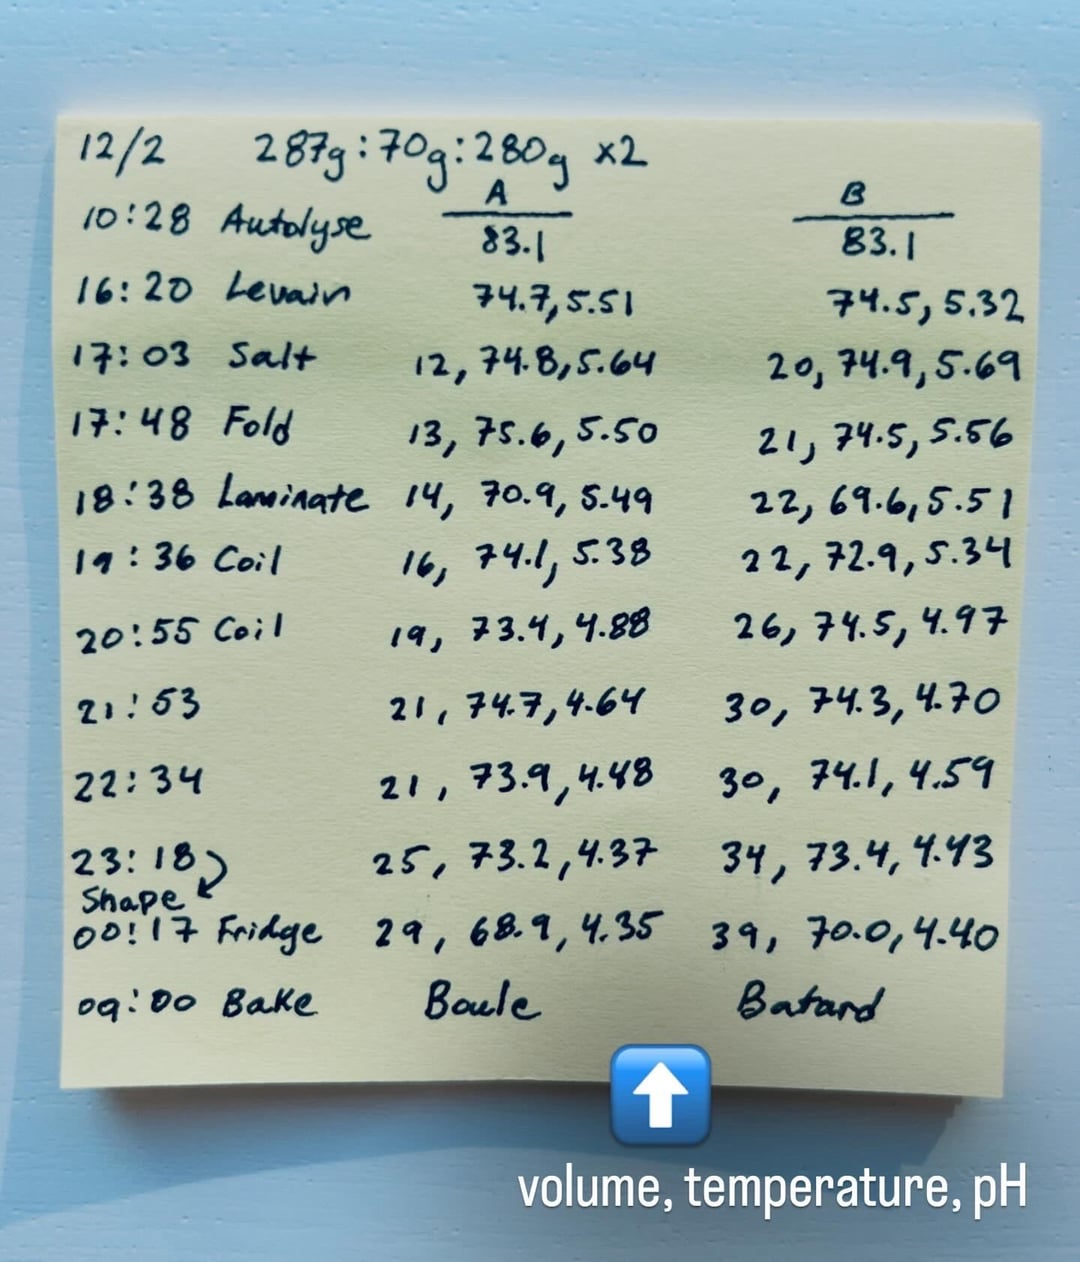 12/2 287g:70g:280g x2
A B
10:28 Autolyse 83.1 83.1
16:20 Levain 74.7, 5.51 74.5, 5.32
17:03 Salt 12, 74.8, 5.64 20, 74.9, 5.69
17:48 Fold 13, 75.6, 5.50 21, 74.5, 5.56
18:38 Laminate 14, 70.9, 5.49 22, 69.6, 5.51
19:36 Coil 16, 74.1, 5.38 22, 72.9, 5.34
20:55 Coil 19, 73.4, 4.88 26, 74.5, 4.97
21:53 21, 74.7, 4.64 30, 74.3, 4.70
22:34 21, 73.9, 4.48 30, 74.1, 4.59
23:18 25, 73.2, 4.37 34, 73.4, 4.43
Shape
00:17 Fridge 29, 68.9, 4.35 39, 70.0, 4.40
09:00 Bake Boule Batard
volume, temperature, pH